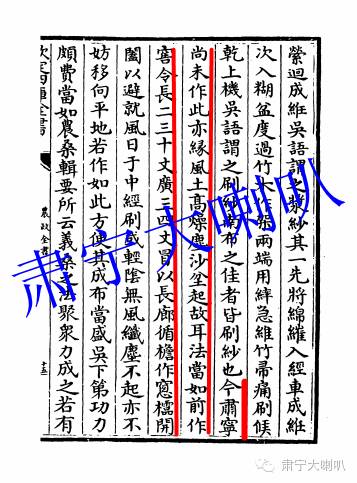 縈迴成維吳語謂之漿紗其一先將綿維入經車成維
次入糊盆度過竹木作架兩端用繂急維竹帚痛刷候
乾上機吳語謂之刷紗南布之佳者皆刷紗也今肅寧
尚未作此亦緣風土高燥塵沙坌起故耳法當如前作
窖令長二三十丈廣三四丈員以長廊循檐作窓櫺開
闔以避就風日于中經刷或輕陰無風纖塵不起亦不
妨移向平地若作如此方便其成布當盛吳下第功力
頗費當如農桑輯要所云義桑之法聚衆力成之若有
欽定四庫全書
農政全書
十三
肃宁大喇叭
肃宁大喇叭